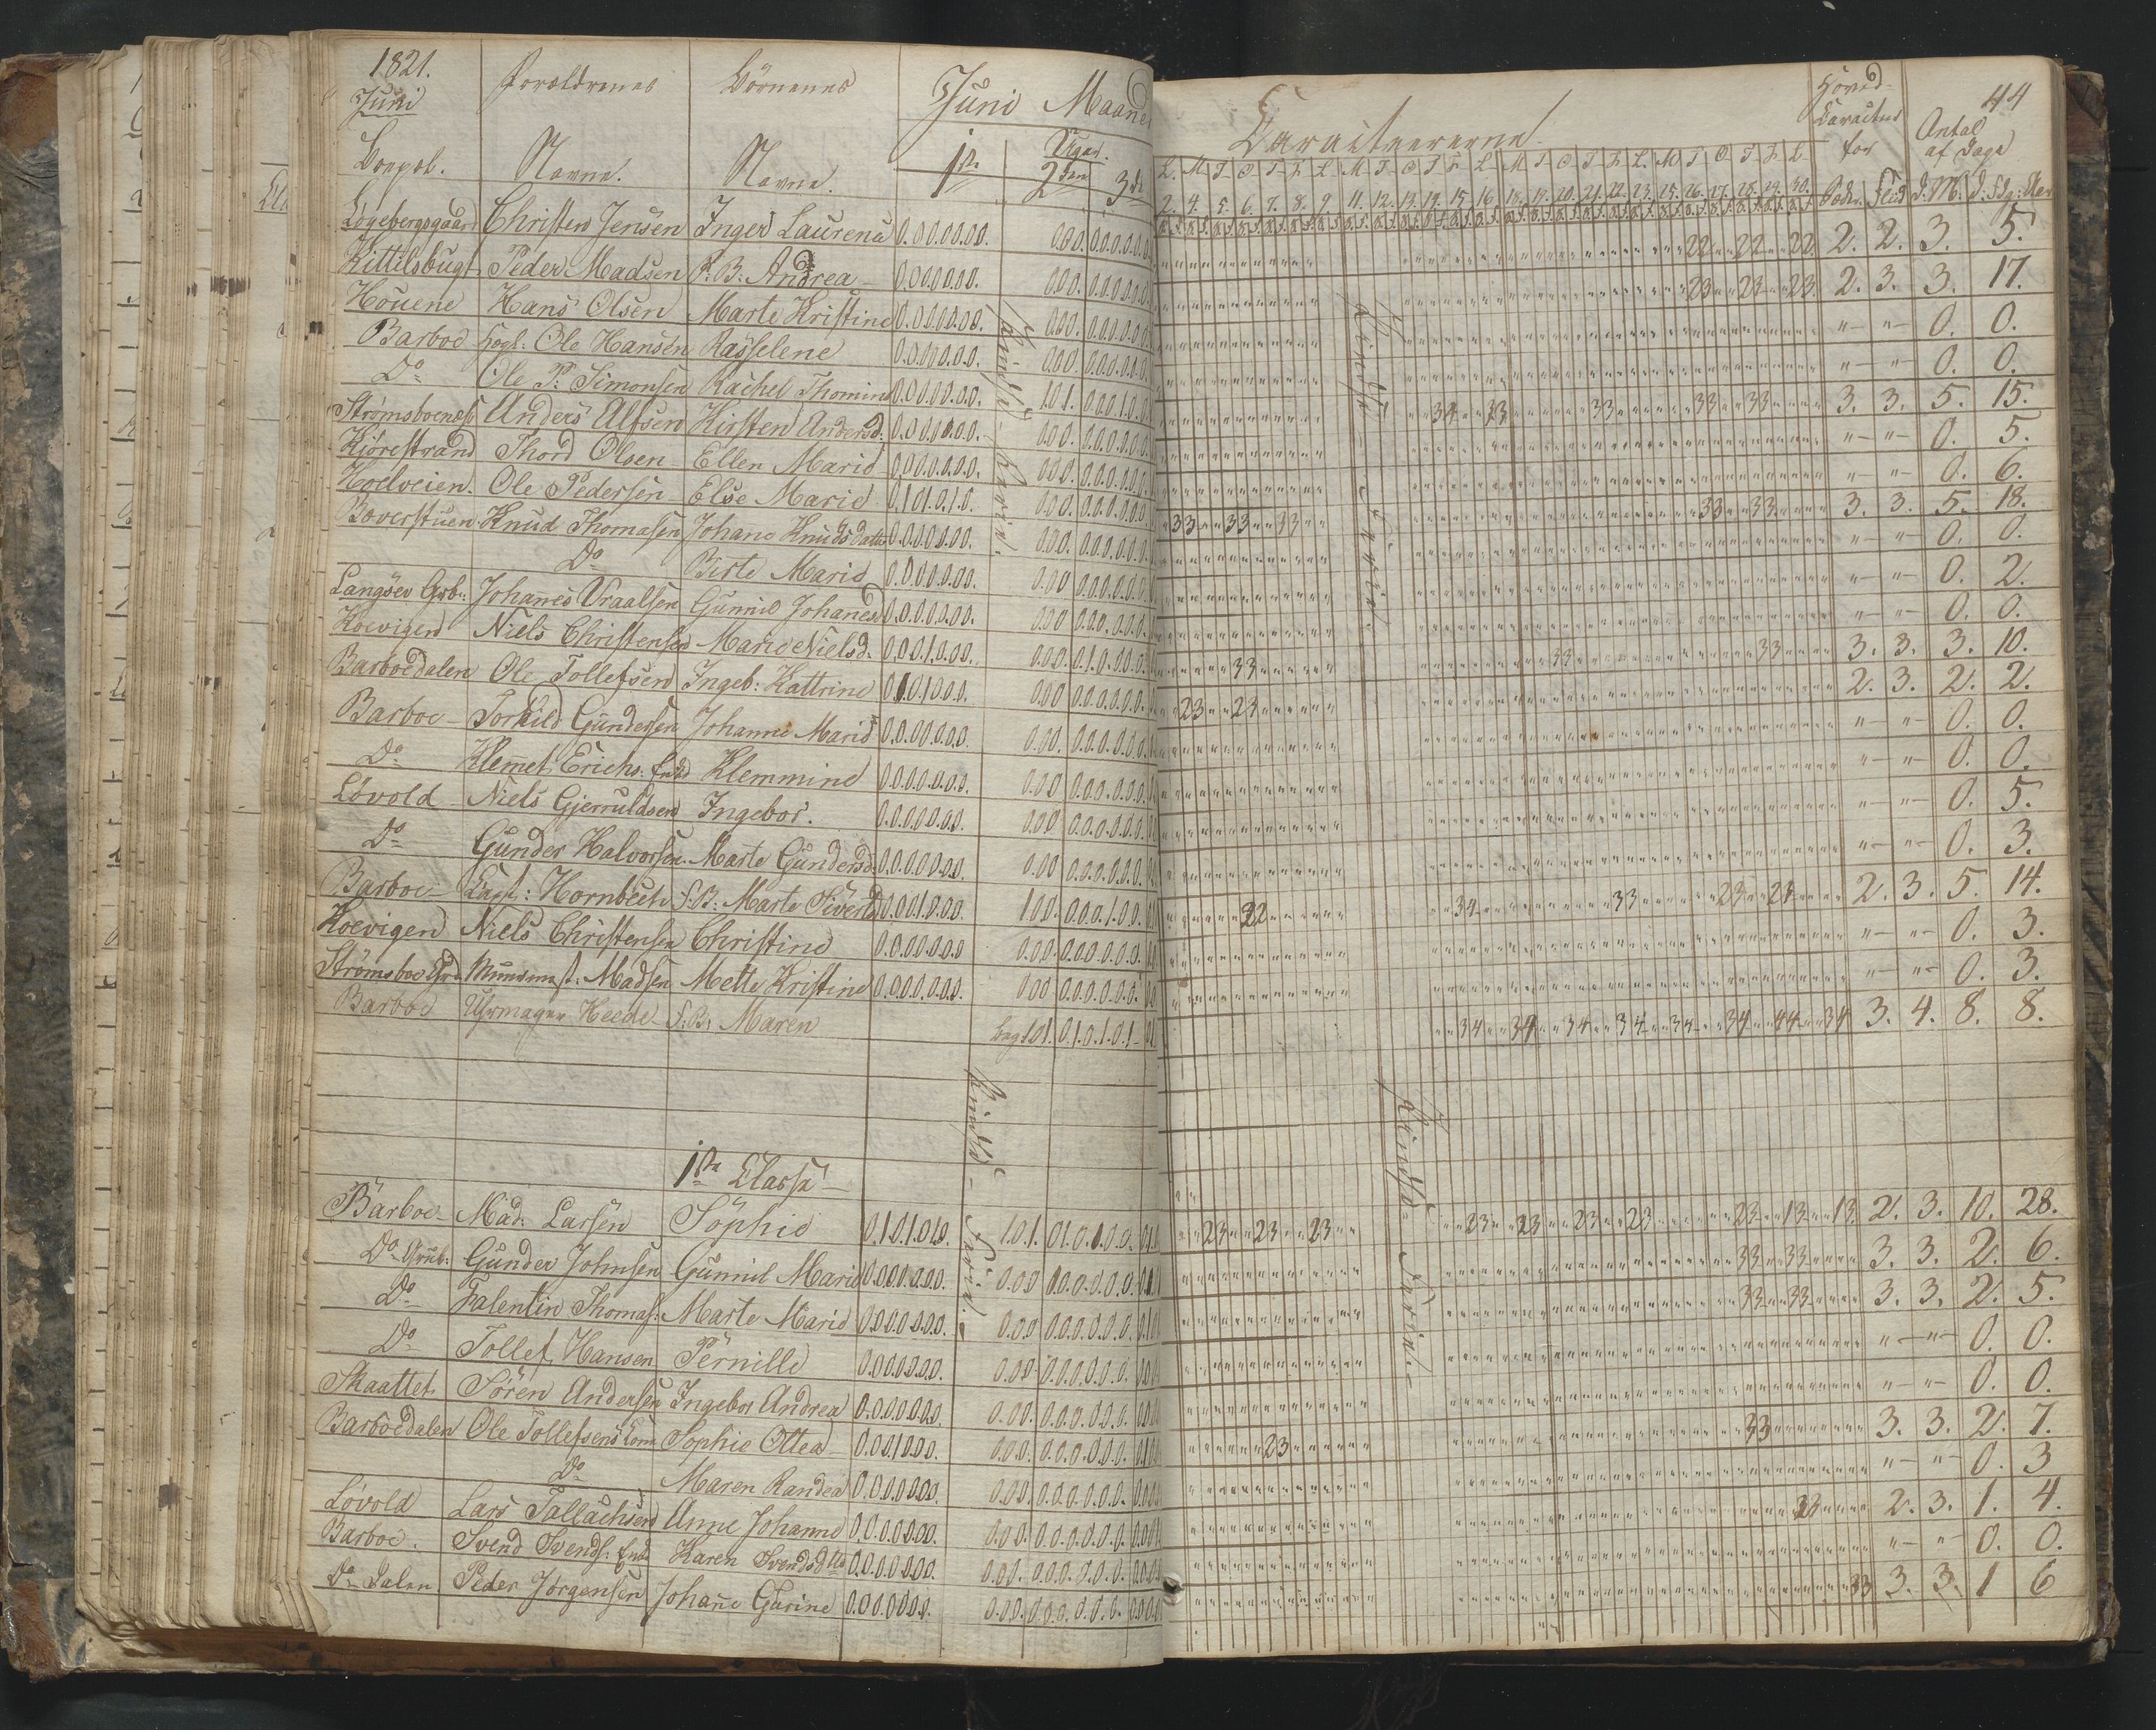 1821. Juni Forældrenes Börnenes Juni Maaned
Boepæl. Navne. Navne. 1ste Uger. 2den 3die
Christen Jensen Inger Laurena 0.0.0.0.0.0. 0.0.0. 0.0.0.0.0.0.
Kittilsbugt Peder Madsen P.B. Andrea 0.0.0.0.0.0. 0.0.0. 0.0.0.0.0.0.
Houene Hans Olsen Marte Kristine 0.0.0.0.0.0. 0.0.0. 0.0.0.0.0.0.
Barboe Ole Hansen Rasselene 0.0.0.0.0.0. 0.0.0. 0.0.0.0.0.0.
Do Ole P. Simonsen Rachel Thomine 0.0.0.0.0.0. 1.0.1. 0.0.0.1.0.0.
Anders Alfsen Kirsten Andersd: 0.0.0.0.0.0. 0.0.0. 0.0.0.0.0.0.
Kjørestrand Thord Olsen Ellen Marie 0.0.0.0.0.0. 0.0.0. 0.0.0.0.0.0.
Hoelveien. Ole Pedersen Else Marie 0.1.0.1.0.1.0. 0.0.0. 0.0.0.0.0.0.
Boverstuen Knud Thomasen Johane Knudsdatter 0.0.0.0.0.0. 0.0.0. 0.0.0.0.0.0.
Do Birte Marie 0.0.0.0.0.0. 0.0.0 0.0.0.0.0.0.
Langsev Grb: Johanes Vraalsen Gunnil Johanesd 0.0.0.0.0.0. 0.0.0 0.0.0.0.0.0.
Koevigen Niels Christensen Marie Nielsd. 0.0.0.1.0.0. 0.0.0. 0.1.0.0.0.0.
Barboedalen Ole Tollefsen Ingeb: Kattrine 0.1.0.1.0.0.0. 0.0.0 0.0.0.0.0.0.
Barboe Torkild Gundersen Johanne Marie 0.0.0.0.0.0. 0.0.0. 0.0.0.0.0.0.
Do Klemet Erichs: Enke Klemmine 0.0.0.0.0.0. 0.0.0 0.0.0.0.0.0.
Lövold Niels Gjerruldsen Ingebor. 0.0.0.0.0.0. 0.0.0 0.0.0.0.0.0.
Do Gunder Halvorsen Marte Gundersd 0.0.0.0.0.0. 0.0.0 0.0.0.0.0.0.
Barboe Capt: Hornbech P.B: Marte Siverts 0.0.0.1.0.0.0. 1.0.0. 0.0.0.1.0.0.
Koevigen Niels Christensen Christine 0.0.0.0.0.0 0.0.0. 0.0.0.0.0.0.
Madsen Mette Kristine 0.0.0.0.0.0. 0.0.0 0.0.0.0.0.0.
Barboe Uhrmager Heede P.B: Maren 1.0.1. 0.1.0.1.0.1
Pindse- Ferie.
1ste Classe
Barboe Mad: Larsen Sophie 0.1.0.1.0.1.0. 1.0.1. 0.1.0.1.0.0.
Do Grub: Gunder Johnsen Gunnil Marie 0.0.0.0.0.0. 0.0.0 0.0.0.0.0.0.
Do Falentin Thomas: Marte Marie 0.0.0.0.0.0. 0.0.0 0.0.0.0.0.0.
Do Tollef Hansen Pernille 0.0.0.0.0.0. 0.0.0 0.0.0.0.0.0.
Skaattet Sören Andersen Ingebor Andrea 0.0.0.0.0.0. 0.0.0. 0.0.0.0.0.0.
Barboedalen Ole Tollefsens Sophie Ottea 0.0.0.1.0.0.0. 0.0.0. 0.0.0.0.0.0.
Do Maren Randea 0.0.0.0.0.0. 0.0.0. 0.0.0.0.0.0.
Lövold Lars Tallachsen Anne Johanne 0.0.0.0.0.0. 0.0.0. 0.0.0.0.0.0.
Barboe. Svend Svends: Enke Karen Svendsdtter 0.0.0.0.0.0. 0.0.0. 0.0.0.0.0.0.
Do Dalen Peder Jörgensen Johane Garine 0.0.0.0.0.0. 0.0.0. 0.0.0.0.0.0.
Pindse- Ferie.
44
Caracteererne Hoved- Caracteer for Antal af Dage
L. M. T. O. T. F. L. M. T. O. T. F. L. M. T. O. T. F. L. M. T. O. T. F. L.
2. 4. 5. 6. 7. 8. 9. 11. 12. 13. 14. 15. 16. 18. 19. 20. 21. 22. 23. 25. 26. 27. 28. 29. 30.
22 22 22 2. 2. 3. 5.
23 23 23 2. 3. 3. 17.
"- "- 0. 0.
"- "- 0. 0.
34 33 33 33 33 3. 3. 5. 15.
"- "- 0. 5.
"- "- 0. 6.
33 33 33 33 33 3. 3. 5. 18.
"- "- 0. 0.
"- "- 0. 2.
"- "- 0. 0.
33 33 33 3. 3. 3. 10.
23 23 2. 3. 2. 2.
"- "- 0. 0.
"- "- 0. 0.
"- "- 0. 5.
"- "- 0. 3.
32 34 33 23 24 2. 3. 5. 14.
"- "- 0. 3.
"- "- 0. 3.
34 34 34 34 34 34 44 34 3. 4. 8. 8.
Pindse- Ferie.
23 23 23 23 23 23 23 23 13 13 2. 3. 10. 28.
33 33 3. 3. 2. 6.
33 33 3. 3. 2. 5.
"- "- 0. 0.
"- "- 0. 0.
23 33 3. 3. 2. 7.
"- "- 0. 3
33 2. 3. 1. 4.
"- "- 0. 0.
33 3. 3. 1 6
Pindse- Ferie.